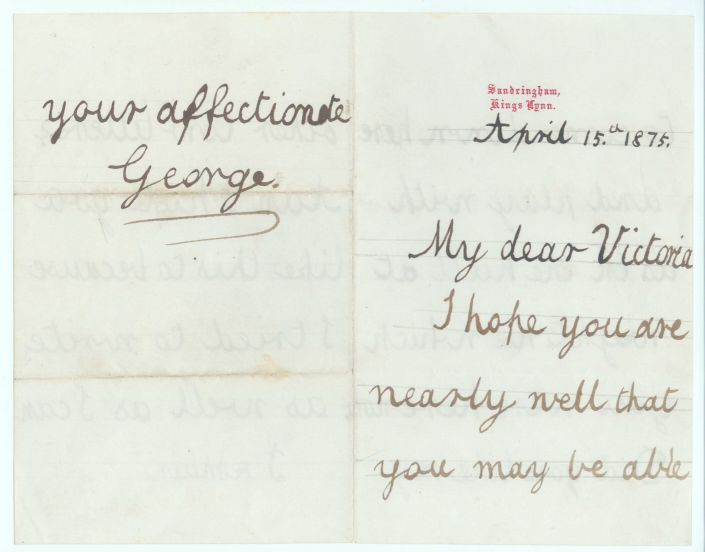 Sandringham,
Kings Lynn.
April 15.th 1875.
My dear Victoria
I hope you are
nearly well that
you may be able
your affectionate
George.